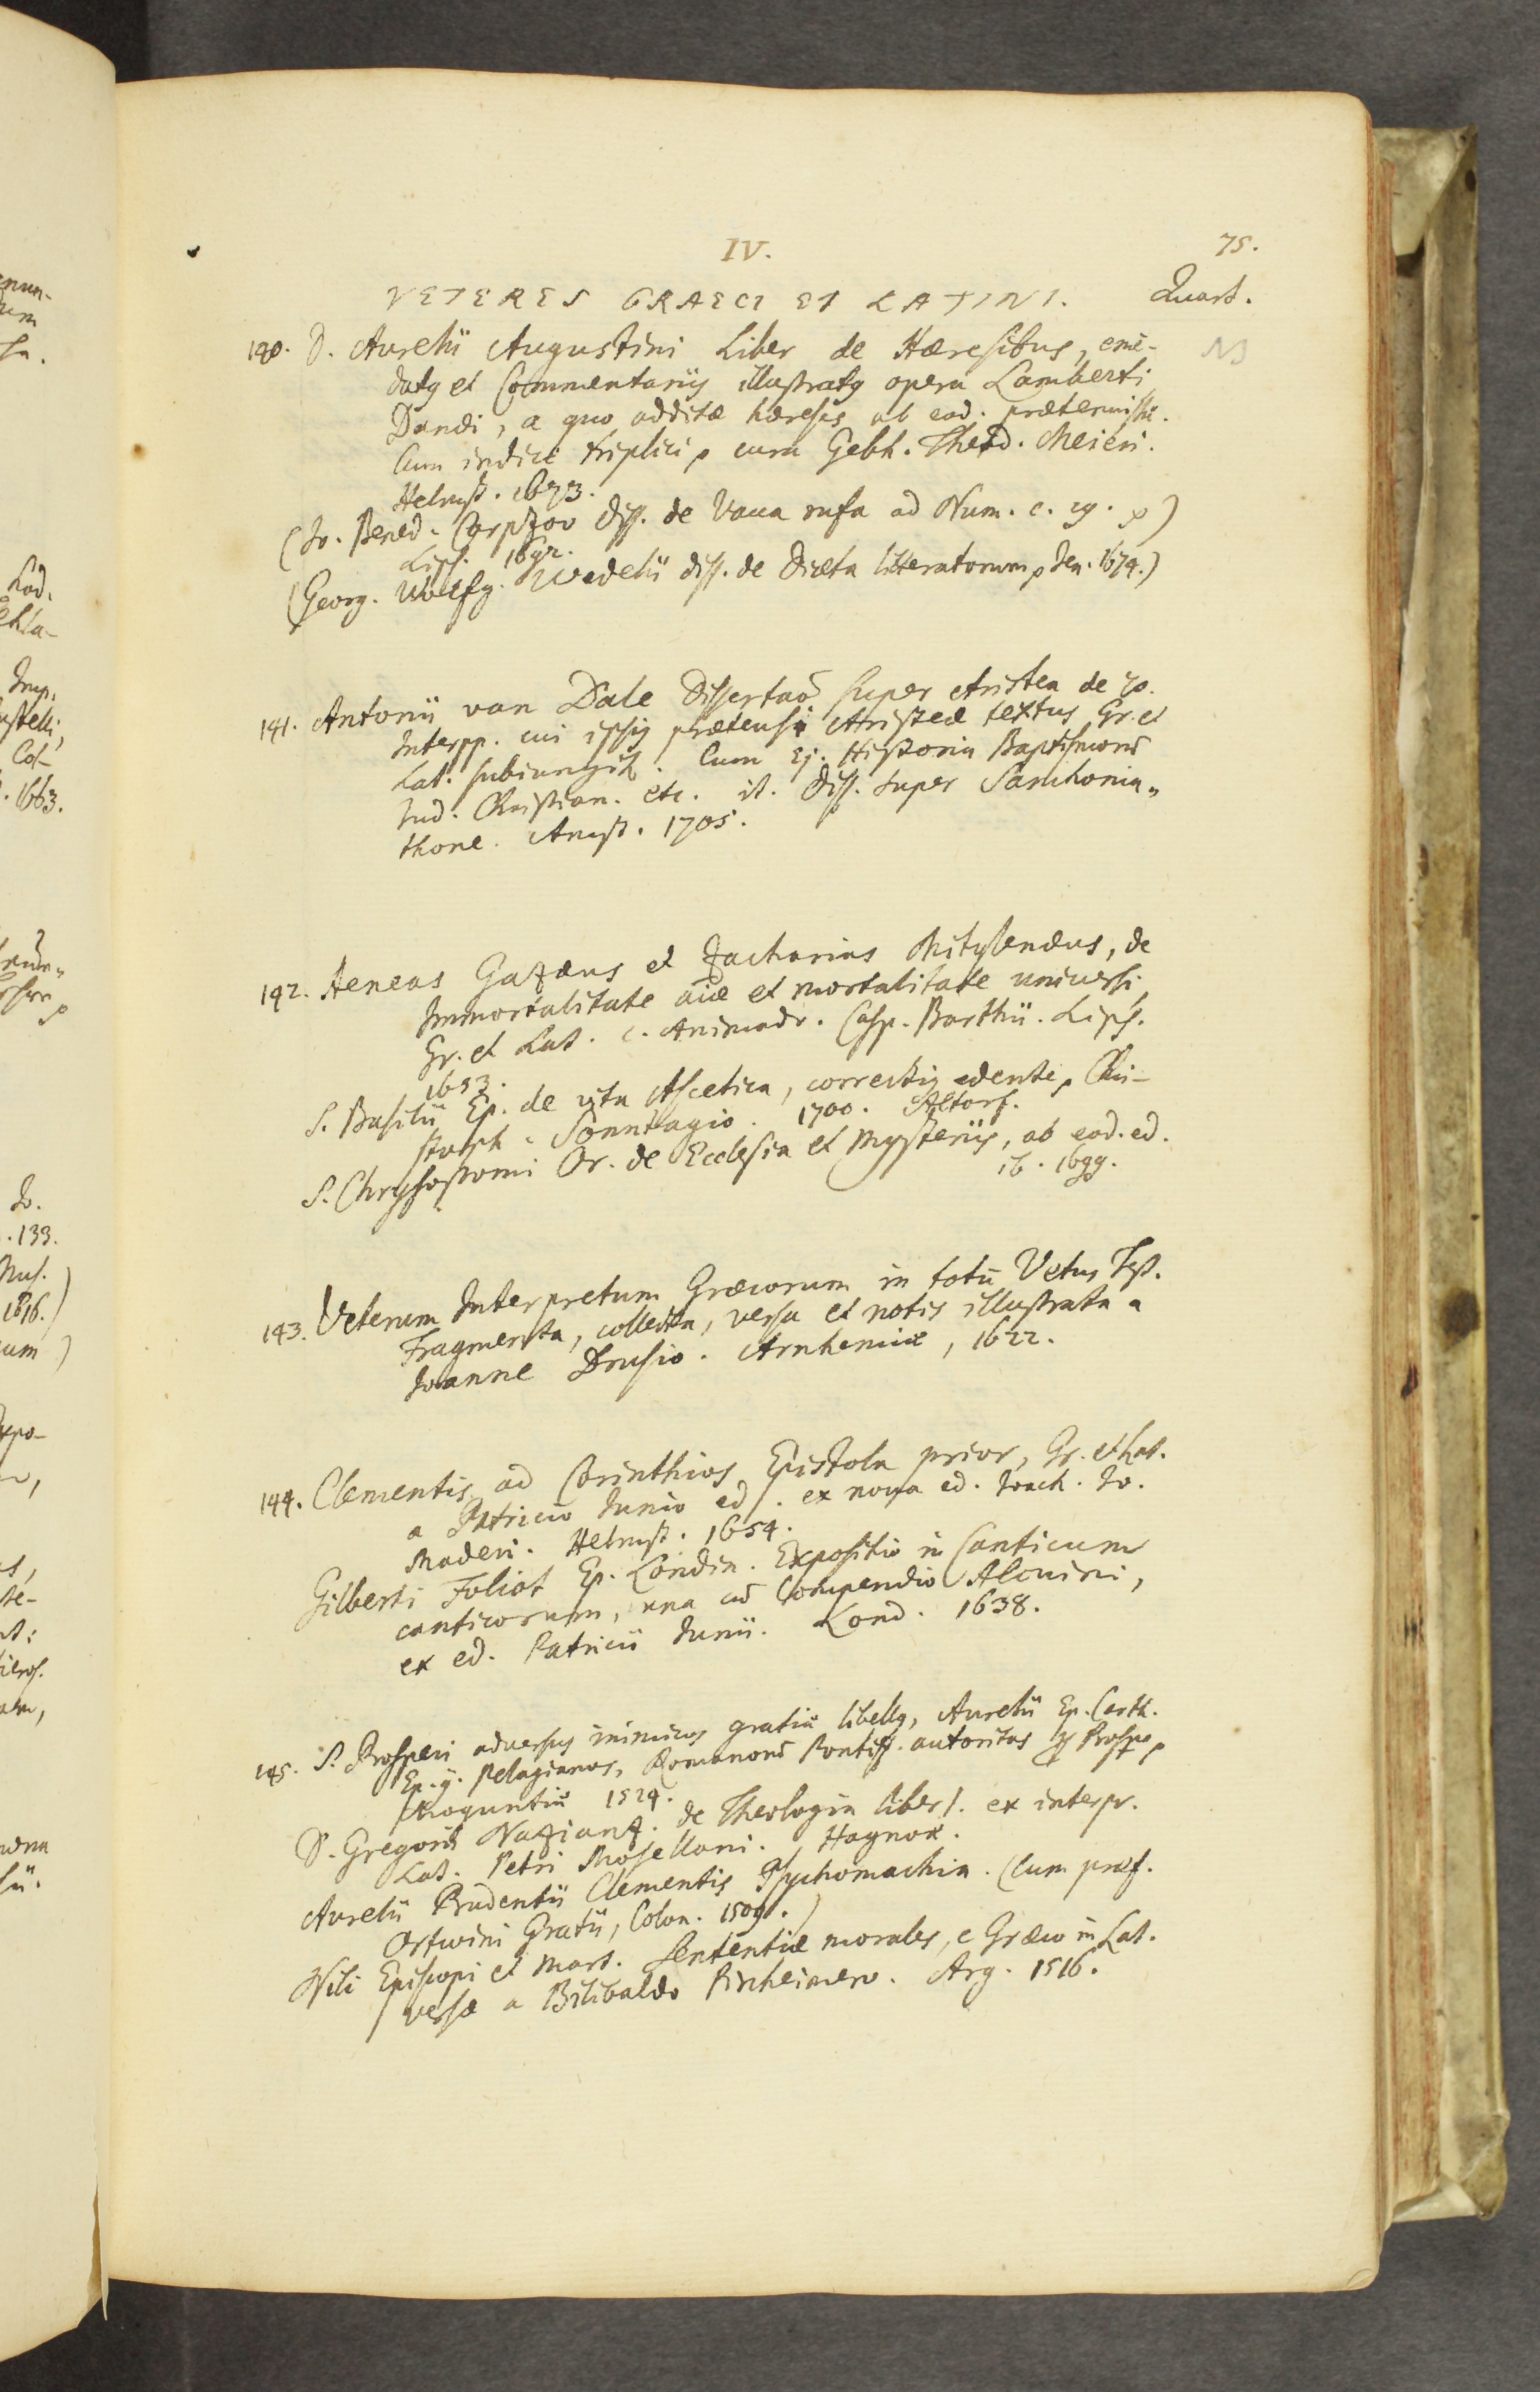 IV.
75.
VETERES GRAECI ET LATINI.
Quart.
140. D. Aurelii Augustini Liber de Hæresibus, emē-
datꝫ et Commentariis illustratꝫ opera Lamberti
Danæi, a quo additæ hæreses ab eod. prætermissæ.
Cum indice triplici, cura Gebh. Theod. Meieri.
Helmst. 1673.
(Jo. Bened. Carpzov Diss. de Vacca rufa ad Num. c. 19.)
Lips. 1692.
(Georg. Wolffg. Wedelii diss. de Diæta litteratorum, Jen. 1674.)
141. Antonii van Dale Dissertaõ super Aristea de 70.
Interpp. cui ipsiꝫ prætensi Aristeæ textus Gr. et
Lat. subiungit. Cum Ej. Historia Baptismorũ
Jud. Christian. etc. it. Diss. super Sanchonia-
thone. Amst. 1705.
142. Aeneas Gazæus et Zacharias Mitylenæus, de
Immortalitate aiæ et mortalitate universi
Gr. et Lat. c. Animadv. Casp. Barthii. Lips.
1653.
S. Basilii Ep. de vita Ascetica, correctiꝫ edente, Chri-
stoph. Sonntagio. 1700. Altorf.
S. Chrysostomi Or. de Ecclesia et Mysteriis, ab eod. ed.
ib. 1699.
143. Veterum Interpretum Græcorum in totũ Vetus Test.
Fragmenta, collecta, versa et notis illustrata a
Joanne Drusio. Arnhemiæ, 1622.
144. Clementis ad Corinthios Epistola prior, Gr. et Lat.
a Patricio Junio ed. ex nova ed. Joach. Jo.
Maderi. Helmst. 1654.
Gilberti Foliot Ep. Londin. Expositio in Canticum
canticorum, una cũ Compendio Alcuini,
ex ed. Patricii Junii. Lond. 1638.
145. S. Prosperi adversus inimicos gratiæ libellꝫ, Aurelii Ep. Carth.
Ep. ꝫ. Pelagianos, Romanorũ Pontiff. autoritas
Moguntiæ 1524.
D. Gregorii Nazianz. de Theologia liber 1. ex interpr.
Lat. Petri Mosellani. Hagnoæ.
Aurelii Prudentii Clementis Psychomachia. (cum præf.
Ortwini Gratii, Colon. 1509.)
Nili Episcopi et Mart. Sententiæ morales, e Græco in Lat.
versæ a Bilibaldo Pirkheimero. Arg. 1516.